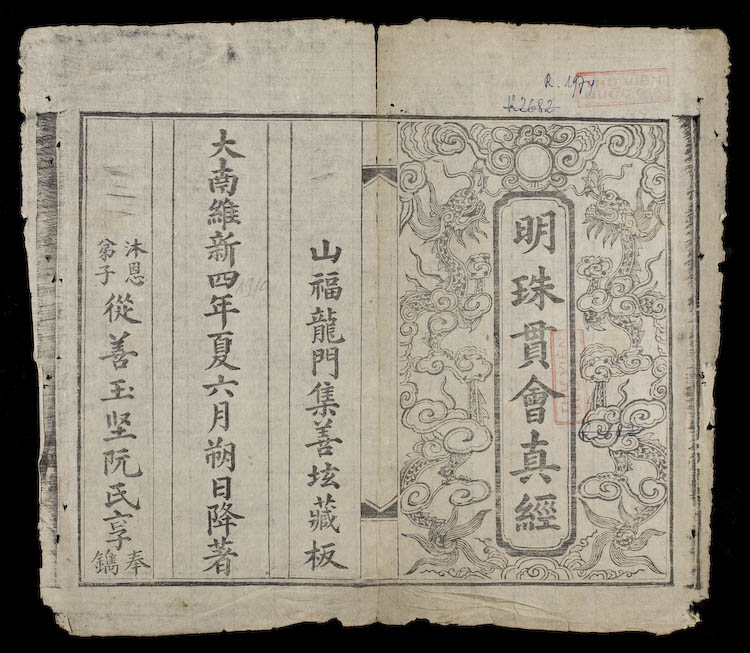 R. 1974
R2682
VIỆN
明珠貫會真經
R2682
山福龍門集善藏板
大南維新四年夏六月朔日降著
沐恩
弟子
從善玉坚阮氏享
奉
鐫